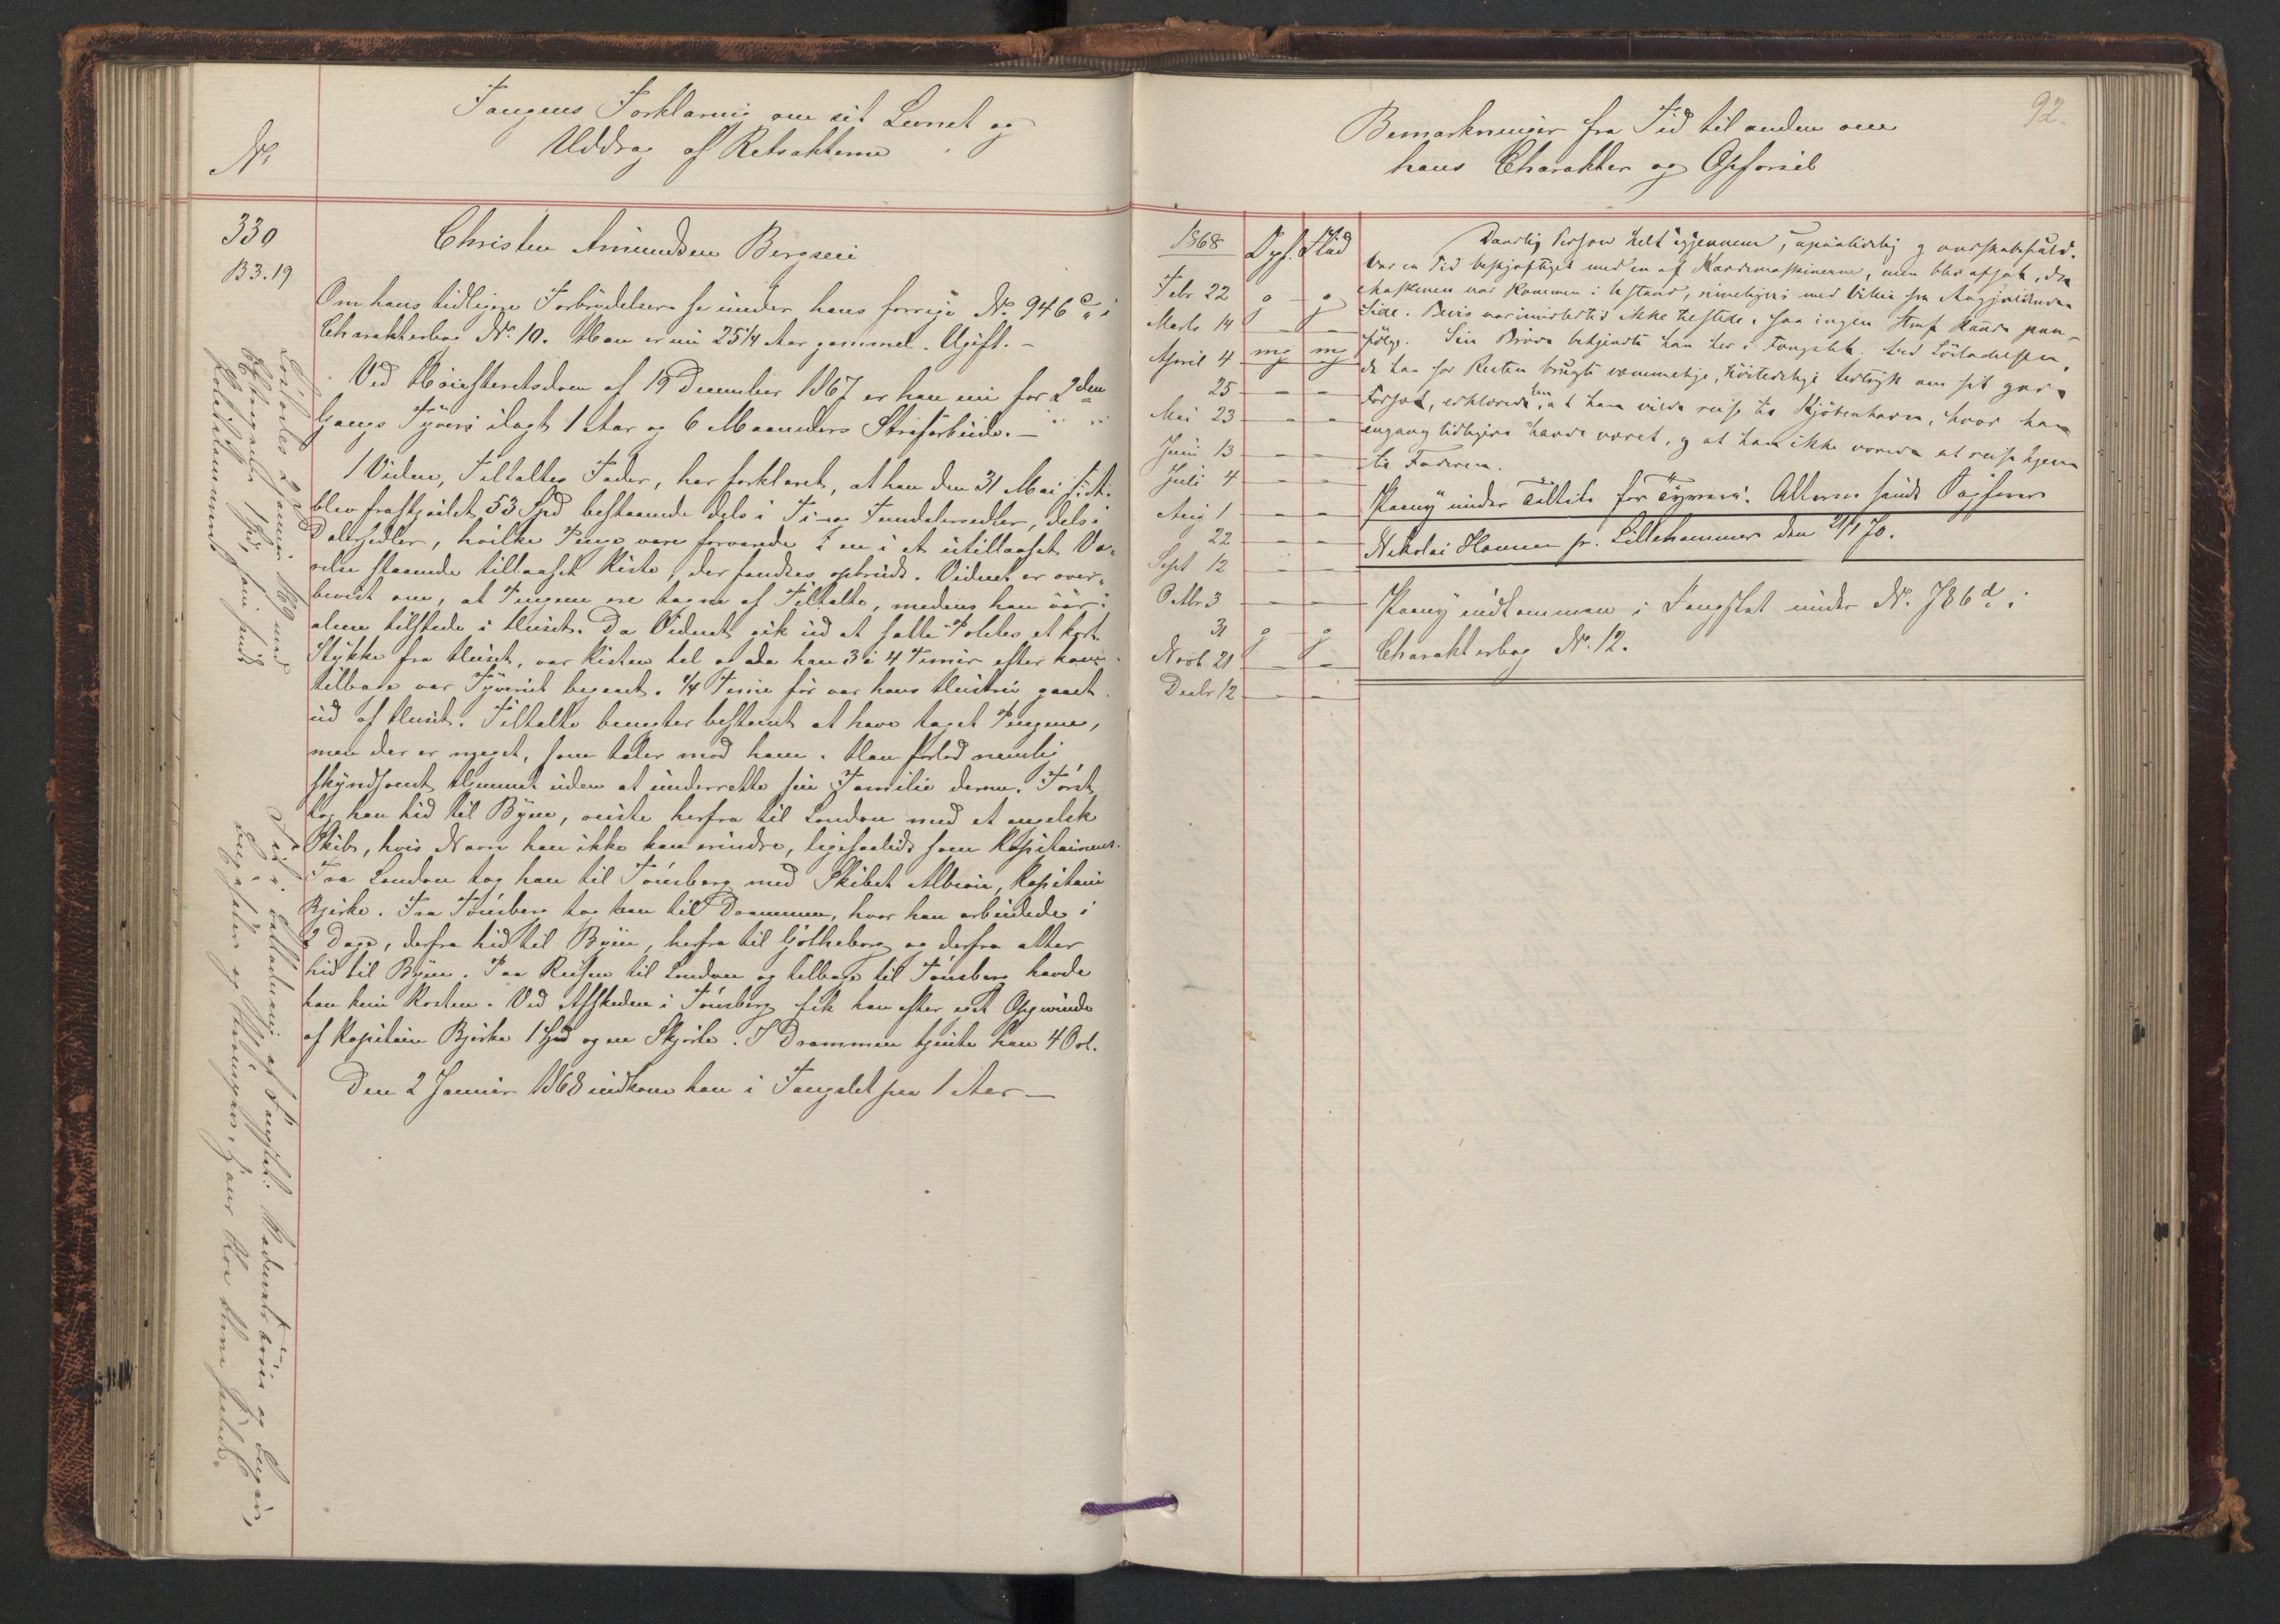 Fangens Forklaring om sit Levnet og
Uddrag af Retsakterne
No
330
B3.19
Christen Amundsen Bergseie
Om hans tidligere Forbrydelser se under hans forrige No. 946 c i
Charakterbog No. 10. Han er nu 25 1/4 Aar gammel. Ugift. –
Ved Høiesteretsdom af 19 December 1867 er han nu for 2den
Gangs Tyveri ilagt 1 Aar og 6 Maaneders Strafarbeide. –
1 Vidne, Tiltaltes Fader, har forklaret, at han den 31 Mai
blev frastjaalet 53 Spd bestaaende dels i Ti- og Femdalersedler, dels i
Dalersedler, hvilke Penge vare forvarede i en i et utillaaset Væ-
relse staaende tillaaset Kiste, der fandtes opbrudt. Vidnet er over-
bevist om, at Pengene ere tagne af Tiltalte, medens han var
alene tilstede i Huset. Da Vidnet gik ud at sætte Poteter et kort
Stykke fra Huset, var Kisten hel og da han 3 à 4 Timer efter kom
tilbage var Tyveriet begaaet. 1/4 Time før var hans Hustru gaaet
ud af Huset. Tiltalte benegter bestemt at have taget Pengene,
men der er meget, som taler mod ham. Han forlod nemlig
skyndsomt Hjemmet uden at underrette sin Familie derom. Først
tog han hid til Byen, reiste herfra til London med et engelsk
Skib, hvis Navn han ikke kan erindre, ligesaalidt som Kapitainens.
Fra London tog han til Tønsberg med Skibet Albion, Kapitain
Bjerke. Fra Tønsberg tog han til Drammen, hvor han arbeidede i
2 Dage, derfra hid til Byen, herfra til Gøtheborg og derfra atter
hid til Byen. Paa Reisen til London og tilbage til Tønsberg havde
han kun Kosten. Ved Afskeden i Tønsberg fik han efter eget Opgivende
af Kapitain Bjerke 1 Spd og en Skjorte. I Drammen tjente han 4 Ort.
Den 2 Januar 1868 indkom han i Fangslet paa 1 Aar –
Løslodes 2 Januar 1869 med
1 Spd, som sendt
Fik i Udladning af Fangslet: Vadmels trøie og
92.
Bemærkninger fra Tid til anden om
hans Charakter og Opførsel
1868 Opf. Flid
Febr 22 g g
Marts 14 – –
April 4 mg mg
25 – –
Mai 23 – –
Juni 13 – –
Juli 4 – –
Aug 1 – –
22 – –
Sept 12 – –
Octbr 3 – –
31 g g
Novb 21 – –
Decbr 12 – –
Daarlig Person helt igjennem, upaalidelig og ondskabsfuld.
Var en Tid beskjæftiget med en af Kardemaskinerne, men blev afsat, da
Maskinen var kommen i Ustand, rimeligvis med Villie fra
Side. Bevis var imidlertid ikke tilstede, saa ingen Straf kunde paa-
følge. Sin Brøde bekjendte han her i Fangslet. Ved Løsladelsen,
da han for Resten brugte vemmelige, høitidelige Udtryk om sit gode
Forsæt, erklærede han, at han vilde reise til Kjøbenhavn, hvor han
engang tidligere havde været, og at han ikke vovede at reise hjem
til Faderen.
Paany under Tiltale for Tyveri. Akterne sendt Sagfører
Nikolai Hansen pr. Lillehammer den 21/1 70.
Paany indkommen i Fangslet under No. 786 d i
Charakterbog No. 12.